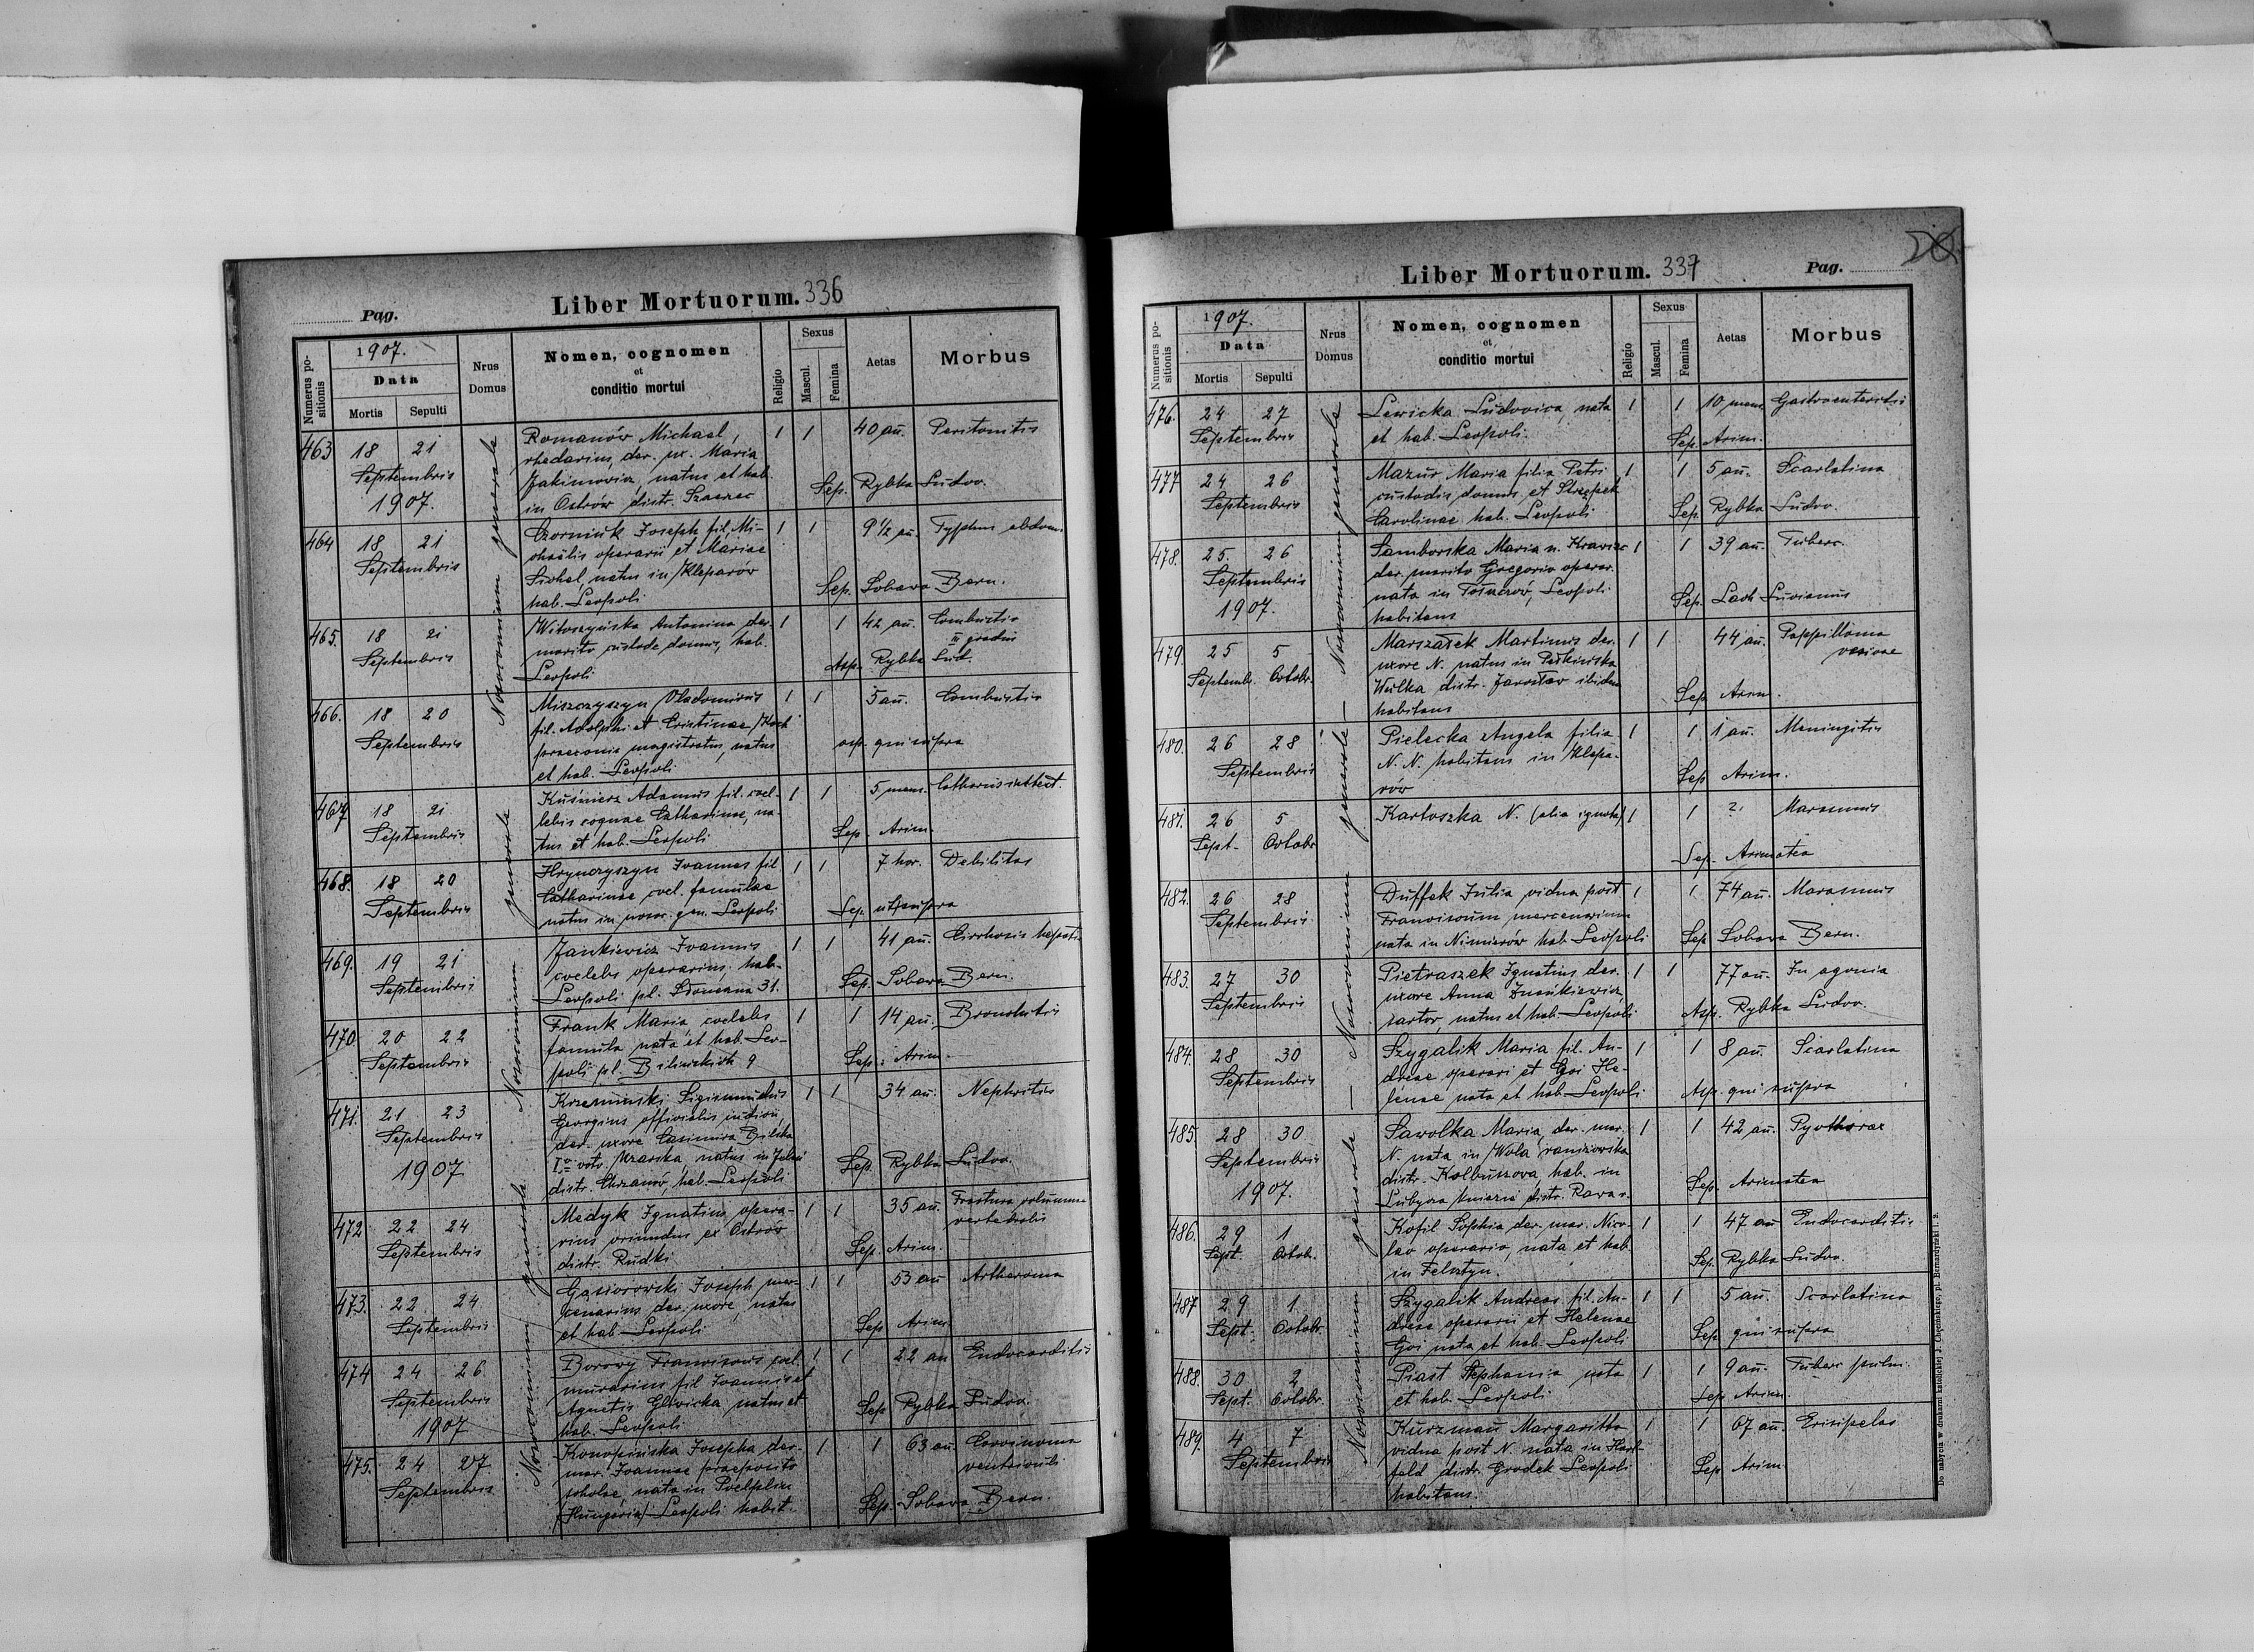 Pag.
Liber Mortuorum. 336
Numerus positionis
1907.
Data
Mortis
Sepulti
Nrus Domus
Nomen, cognomen
et
conditio mortui
Religio
Sexus
Mascul.
Femina
Aetas
Morbus
Nosocomium generale
463 18 21 Romanów Michael, 1 1 40 an. Peritonitis
Septembris rhedarius, der. ux. Maria
1907. Jakimowicz, natus et hab. Sep. Rybka Ludov.
in Ostrów distr. Szczerzec
464 18 21 Czorniuk Joseph fil. Mi- 1 1 9 1/2 an. Typhus abdom.
Septembris chaëlis operarii et Mariae
natus in Kleparów Sep. Sobawa Bern.
hab. Leopoli
465. 18 21 Witoszyńska Antonina der. 1 1 42 an. Combustio
III gradus
Septembris marito custode domus, hab. Asp. Rybka Lud.
Leopoli
466. 18 20 Miszczyszyn Vladomirus 1 1 5 an. Combustio
Septembris fil. Adolphi et Cristinae Koch
praeconis magistratus, natus asp. qui supra
et hab. Leopoli
467 18 21 Kuśnierz Adamus fil. coel- 1 1 5 mens. Catharus intest.
Septembris lebis coquae Catharinae, na-
tus et hab. Leopoli Sep. Arim.
468. 18 20 Hrynczyszyn Joannes fil 1 1 7 hor. Debilitas
Septembris Catharinae coel. famulae
natus in nosoc. gen. Leopoli Sep. ut supra
469. 19 21 Jankiewicz Joannes 1 1 41 an. Cirrhosis hepatis
Septembris coelebs operarius hab.
Leopoli pl. Słomiana 31. Sep. Sobawa Bern.
470. 20 22 Frank Maria coelebs 1 1 14 an. Bronchitis
Septembris famula nata et hab. Leo-
poli pl. Bilińskich 9 Sep. Arim.
471. 21 23 Krzemiński Sigismundus 1 1 34 an. Nephritis
Septembris Georgius officialis
1907 der. uxore Casimira Bilska
I-o voto natus in
distr. Chrzanów, hab. Leopoli Sep. Rybka Ludov.
472 22 24 Medyk Ignatius opera- 1 1 35 an. Fractura columnae
vertebralis
Septembris rius oriundus ex Ostrów
distr. Rudki Sep. Arim.
473. 22 24 Gąsiorowski Joseph mer- 1 1 53 an Artheroma
Septembris cenarius der. uxore, natus
et hab. Leopoli Sep Arim.
474 24 26 Borowy Franciscus coel. 1 1 22 an Endocarditis
Septembris murarius fil Joannis et
1907 Agnetis natus et Sep Rybka Ludov.
hab. Leopoli
475. 24 27 Konopińska Josepha der. 1 1 63 an. Carcinoma
ventriculi
Septembris mar. Joannae praeposito
scholae, nata in
(Hungaria) Leopoli habit. Sep. Sobawa Bern.
Liber Mortuorum. 337
Pag.
Numerus positionis
1907.
Data
Mortis
Sepulti
Nrus Domus
Nomen, cognomen
et
conditio mortui
Religio
Sexus
Mascul.
Femina
Aetas
Morbus
Nosocomium generale
476. 24 27 Lewicka Ludovica, nata 1 1 10 mens. Gastroenteritis
Septembris et hab. Leopoli. Sep. Arim.
477 24 26 Mazur Maria filia Petri 1 1 5 an. Scarlatina
Septembris custodis domus et
Carolinae hab. Leopoli Sep. Rybka Ludov.
478. 25. 26 Samborska Maria n. Krawiec 1 1 39 an. Tuberc.
Septembris der. marito Gregorio operar.
1907. nata in Leopoli Sep. Lach Luvianus
habitans
479. 25 5 Marszałek Martinus der. 1 1 44 an. Pappilloma
vesicae
Septemb. Octobr. uxore N. natus in Pełkińska
Wulka distr. Jarosław ibidem Sep Arim.
habitans
480. 26 28 Pielecka Angela filia 1 1 1 an. Meningitis
Septembris N. N. habitans in Klepa-
rów Sep Arim.
481. 26 5 Kartoszka N. (alia ignota) 1 1 ? Marasmus
Sept. Octobr Sep. Arimatea
482. 26 28 Duffek Julia vidua post 1 1 74 an. Marasmus
Septembris Franciscum mercenarium
nata in Nimierów hab Leopoli Sep Sobawa Bern.
483. 27 30 Pietraszek Ignatius der. 1 1 77 an. In agonia
Septembris uxore Anna
sartor, natus et hab. Leopoli Asp. Rybka Ludov.
484. 28 30 Szygalik Maria fil. An- 1 1 8 an. Scarlatina
Septembris dreae operarii et Goi He-
lenae nata et hab Leopoli Asp. qui supra
485. 28 30 Sawolka Maria der. mar. 1 1 42 an. Pyothorax
Septembris N. nata in Wola raniżowska
1907. distr. Kolbuszowa, hab. in
Lubycza kniazie distr. Rawa r. Sep. Arimatea
486. 29 1 Kofil Sophia der. mar. Nico- 1 1 47 an Endocarditis
Sept. Octob. lao operario, nata et hab
in Felsztyn. Sep. Rybka Ludov.
487 29 1 Szygalik Andreas fil. An- 1 1 5 an. Scarlatina
Sept. Octobr. dreae operarii et Helenae
Goi nata et hab. Leopoli Sep qui supra
488. 30 2 Piast Stephania nata 1 1 9 an. Tuberc pulm.
Sept. Octobr. et hab. Leopoli Sep Arim.
489. 4 7 Kurzmań Margaritta 1 1 67 an. Erisipelas
Septembris vidua post N. nata in Hart-
feld distr. Gródek Leopoli Sep Arim
habitans.
Do nabycia w drukarni katolickiej J. Chęcińskiego, pl. Bernardyński l. 9.